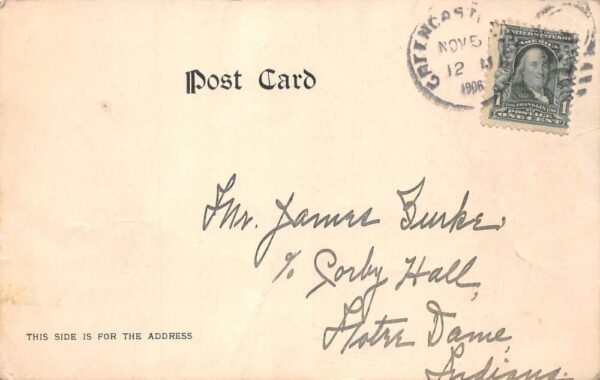 GREENCASTLE
NOV 5
12 M
1906
UNITED STATES OF
AMERICA
1 FRANKLIN 1
POSTAGE
ONE CENT
Post Card
Mr. James Burke
c/o Corby Hall,
Notre Dame,
Indiana.
THIS SIDE IS FOR THE ADDRESS